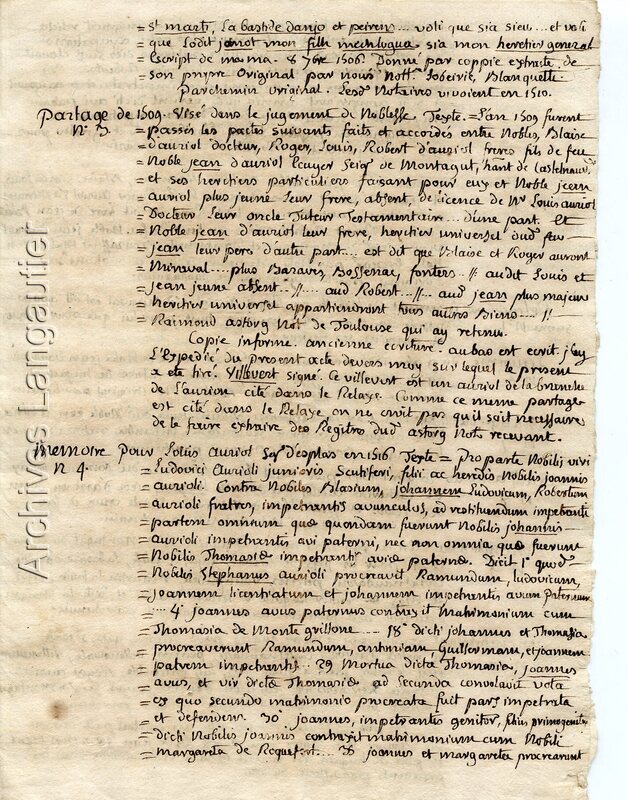 = St marti, La bastide danjo et peirens... voli que sia sieu... et voli
= que Lodit janot mon filh mechlogua sia mon heretier general
= Escript de ma ma. 8 7bre 1506. Donné par coppie extraite de
= son propre Original par nous Nottres Blanquette
= Parchemin Original. Lesd Notaires vivoient en 1510.
Partage de 1509. Visé dans le jugement de Noblesse Texte = Lan 1509 furent
N. 3 = passés les pactes suivants faits et accordés entre Nobles, Blaise
= d'auriol docteur, Roger, Louis, Robert d'auriol freres fils de feu
= Noble jean d'auriol Ecuyer Seigr de Montagut, habant de Castelnaud
= et ses heretiers particuliers faisant pour eux et Noble jean
= auriol plus jeune Leur frere, absent, de licence de Mr Louis auriol
= Docteur Leur oncle Tuteur Testamentaire... d'une part. et
= Noble jean d'auriol leur frere, heretier universel dud feu
= jean leur pere d'autre part... est dit que Blaise et Roger auront
= Miraval... plus Baravis, Bossenac, fonters.. // audit Louis et
= jean jeune absent.. //... aud Robert... //.. aud jean plus majeur
= heretier universel appartiendront tous autres Biens... //
= Raimond astorg Not de Toulouse qui ay retenu.
Copie informe. ancienne ecriture. au bas est ecrit. j'ay
L'Expedié du present acte devers moy sur lequel le present
a ete tiré. Villevert signé. Ce villevert est un auriol de la branche
de Lauriou cité dans le Relaxe. Comme ce meme partage
est cité dans le Relaxe on ne croit pas qu'il soit necessaire
de le faire extraire des Registres dud astorg Notre recevant.
Memoire pour Louis Auriol Sgr d'esplas en 1516 Texte = Pro parte Nobilis viri
N 4. = Ludovici Aurioli junioris Scutiferi, filii ac heredis Nobilis joannis
= aurioli. Contra Nobiles Blasium, johannem Ludovicum, Robertum
= aurioli fratres, impetrantis avunculos, ad restituendum impetranti
= partem omnium que quondam fuerunt Nobilis johannis
= Aurioli impetrantis avi paterni, nec non omnia que fuerunt
= Nobilis Thomasie impetrantis avie paterne. Dicit 1o quod
= Nobilis Stephanus aurioli procreavit Ramundum, ludovicum,
= Joannem licentiatum et johannem impetrantis avum paternum
= ... 4o joannes avus paternus contraxit matrimonium cum
= Thomasia de Monte grillone... 18o dicti johannes et Thomasia
= procreaverunt Ramundum, antoniam, Guillermam, et joannem
= patrem impetrantis. 29 Mortua dicta Thomasia, joannes
= avus, et vir dicte Thomasie ad Secunda convolavit vota
= ex quo secundo matrimonio procreata fuit pars impetrata
= et defendens. 30o joannes, impetrantis genitor, filius primogenitus
= dicti Nobilis joannis contraxit matrimonium cum Nobili
= margareta de Roquefort... joannes et margareta procrearunt
Archives Langautier